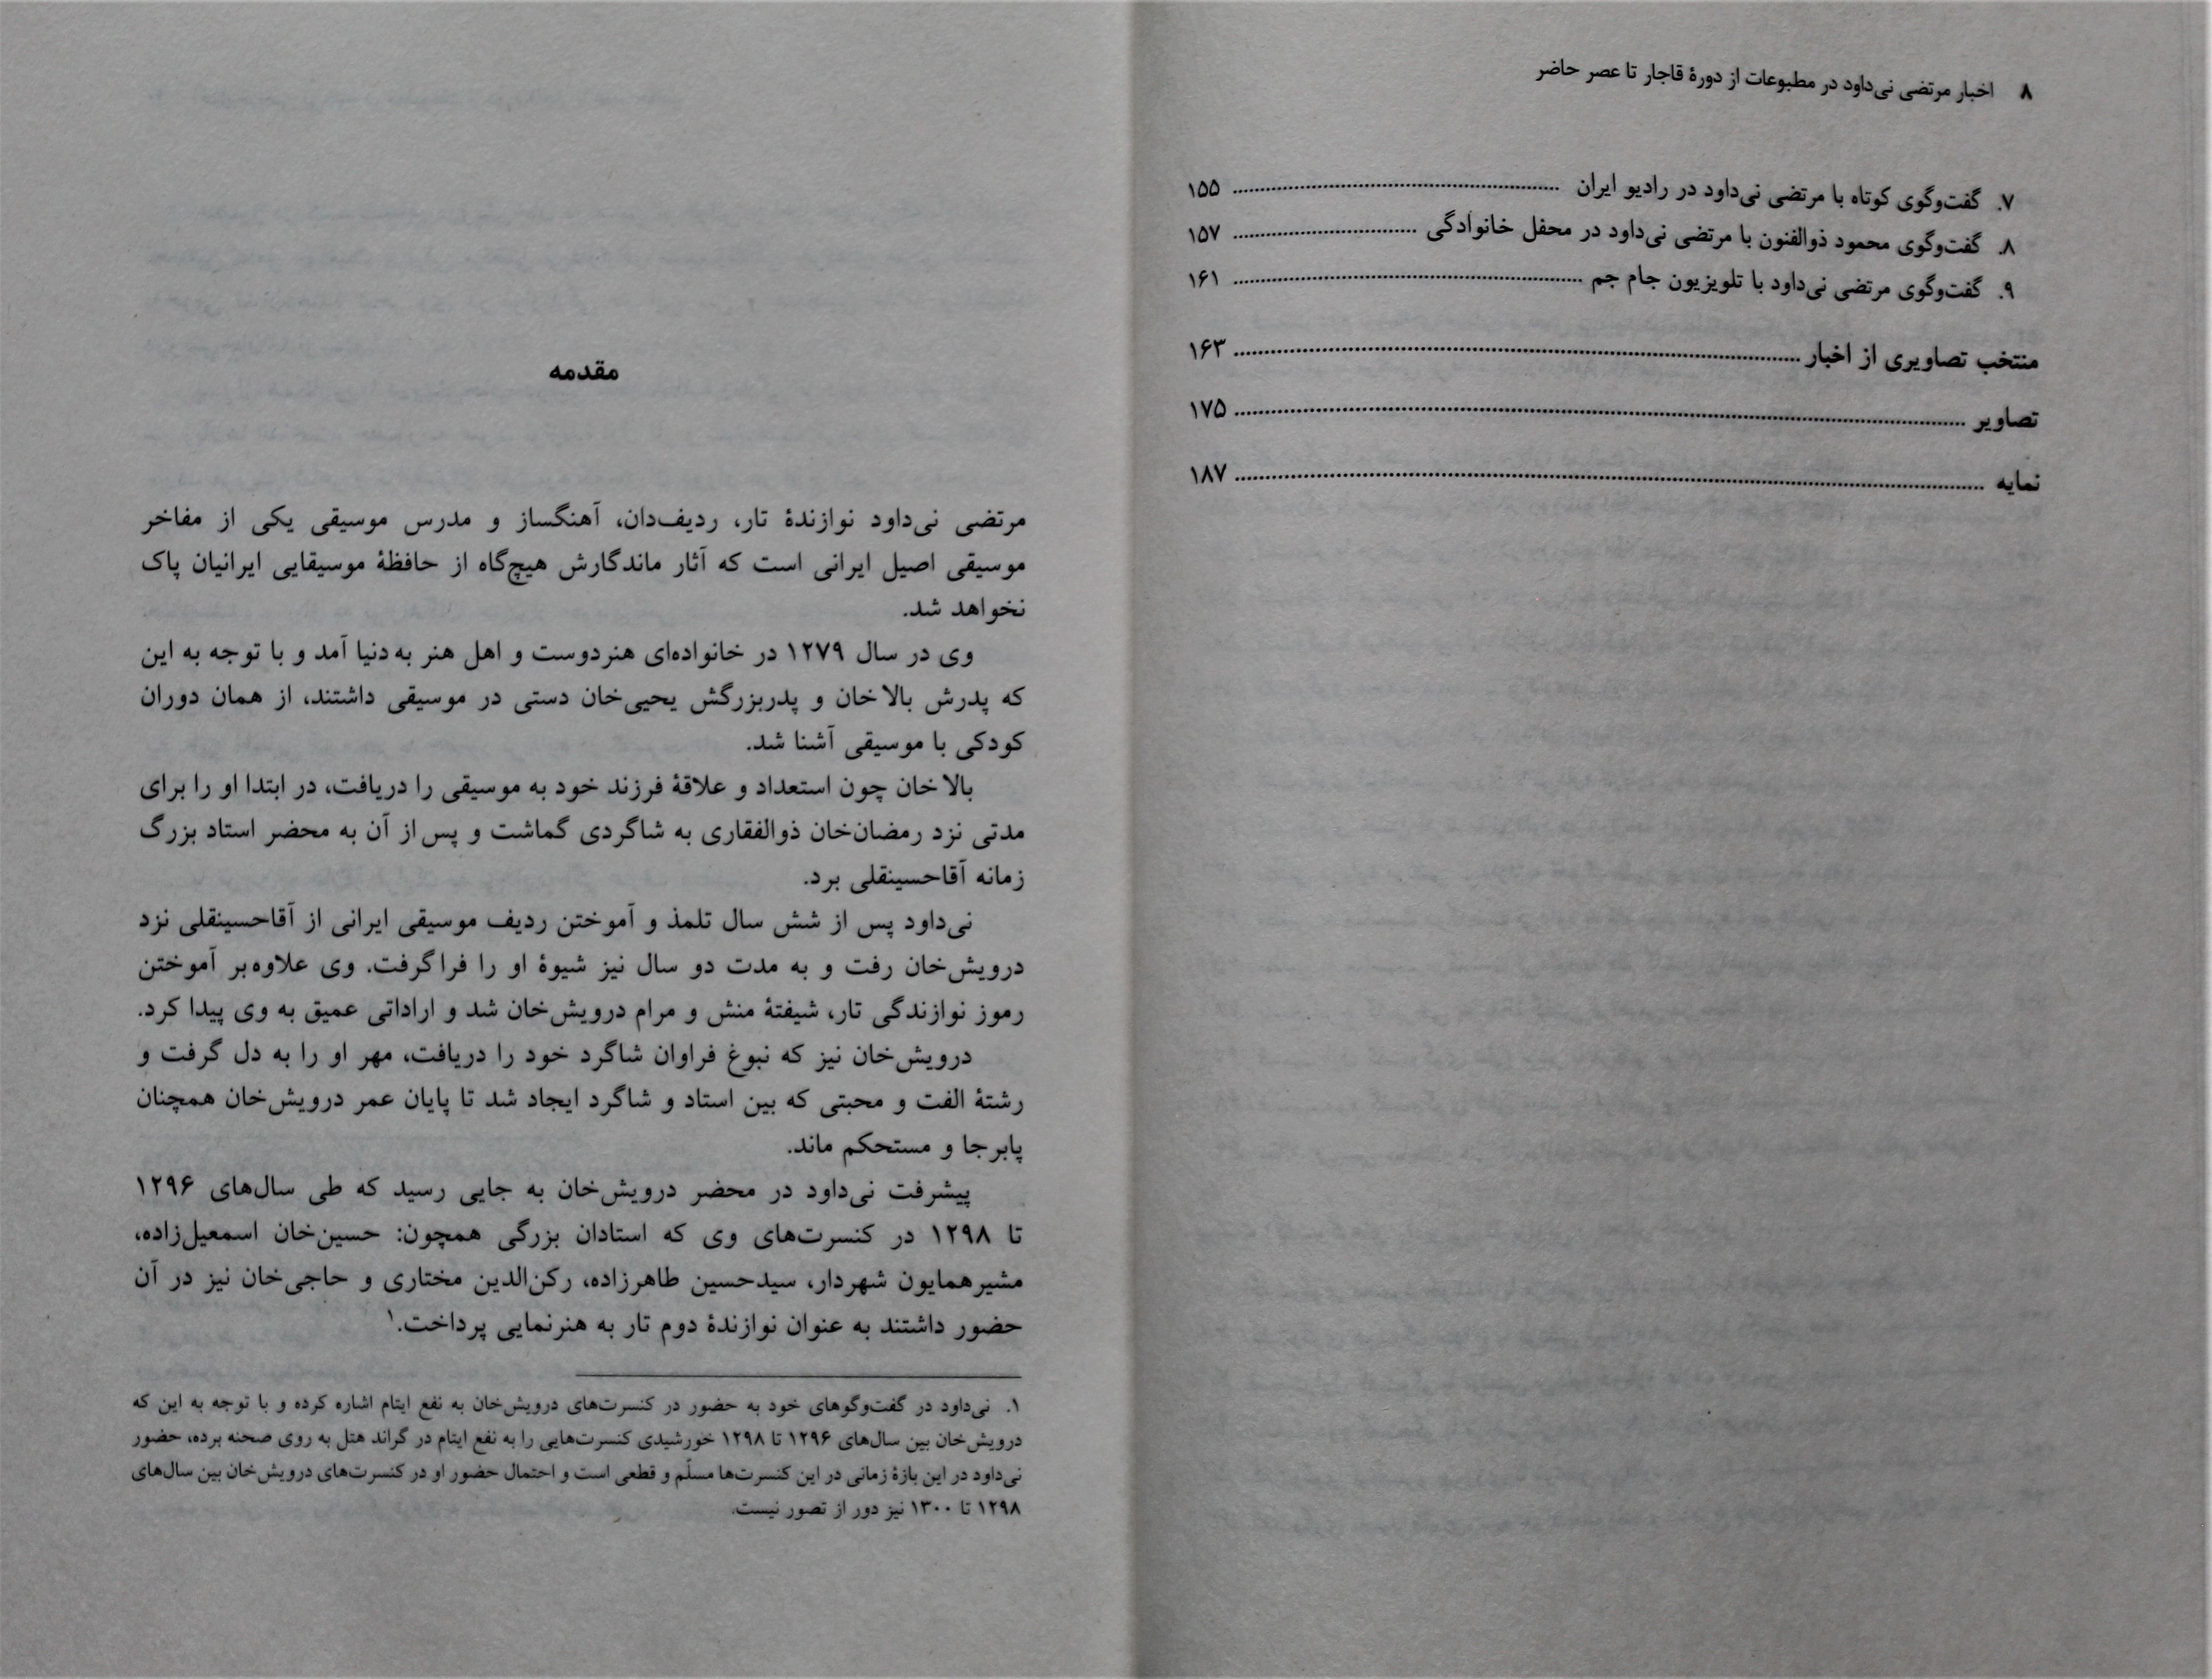 ۸ اخبار مرتضی نی‌داود در مطبوعات از دورهٔ قاجار تا عصر حاضر
۷. گفت‌وگوی کوتاه با مرتضی نی‌داود در رادیو ایران ۱۵۵
۸. گفت‌وگوی محمود ذوالفنون با مرتضی نی‌داود در محفل خانوادگی ۱۵۷
۹. گفت‌وگوی مرتضی نی‌داود با تلویزیون جام جم ۱۶۱
منتخب تصاویری از اخبار ۱۶۳
تصاویر ۱۷۵
نمایه ۱۸۷
مقدمه
مرتضی نی‌داود نوازندهٔ تار، ردیف‌دان، آهنگساز و مدرس موسیقی یکی از مفاخر
موسیقی اصیل ایرانی است که آثار ماندگارش هیچ‌گاه از حافظهٔ موسیقایی ایرانیان پاک
نخواهد شد.
وی در سال ۱۲۷۹ در خانواده‌ای هنردوست و اهل هنر به دنیا آمد و با توجه به این
که پدرش بالاخان و پدربزرگش یحیی‌خان دستی در موسیقی داشتند، از همان دوران
کودکی با موسیقی آشنا شد.
بالاخان چون استعداد و علاقهٔ فرزند خود به موسیقی را دریافت، در ابتدا او را برای
مدتی نزد رمضان‌خان ذوالفقاری به شاگردی گماشت و پس از آن به محضر استاد بزرگ
زمانه آقاحسینقلی برد.
نی‌داود پس از شش سال تلمذ و آموختن ردیف موسیقی ایرانی از آقاحسینقلی نزد
درویش‌خان رفت و به مدت دو سال نیز شیوهٔ او را فراگرفت. وی علاوه‌بر آموختن
رموز نوازندگی تار، شیفتهٔ منش و مرام درویش‌خان شد و اراداتی عمیق به وی پیدا کرد.
درویش‌خان نیز که نبوغ فراوان شاگرد خود را دریافت، مهر او را به دل گرفت و
رشتهٔ الفت و محبتی که بین استاد و شاگرد ایجاد شد تا پایان عمر درویش‌خان همچنان
پابرجا و مستحکم ماند.
پیشرفت نی‌داود در محضر درویش‌خان به جایی رسید که طی سال‌های ۱۲۹۶
تا ۱۲۹۸ در کنسرت‌های وی که استادان بزرگی همچون: حسین‌خان اسمعیل‌زاده،
مشیرهمایون شهردار، سیدحسین طاهرزاده، رکن‌الدین مختاری و حاجی‌خان نیز در آن
حضور داشتند به عنوان نوازندهٔ دوم تار به هنرنمایی پرداخت.۱
۱. نی‌داود در گفت‌وگوهای خود به حضور در کنسرت‌های درویش‌خان به نفع ایتام اشاره کرده و با توجه به این که
درویش‌خان بین سال‌های ۱۲۹۶ تا ۱۲۹۸ خورشیدی کنسرت‌هایی را به نفع ایتام در گراند هتل به روی صحنه برده، حضور
نی‌داود در این بازهٔ زمانی در این کنسرت‌ها مسلّم و قطعی است و احتمال حضور او در کنسرت‌های درویش‌خان بین سال‌های
۱۲۹۸ تا ۱۳۰۰ نیز دور از تصور نیست.